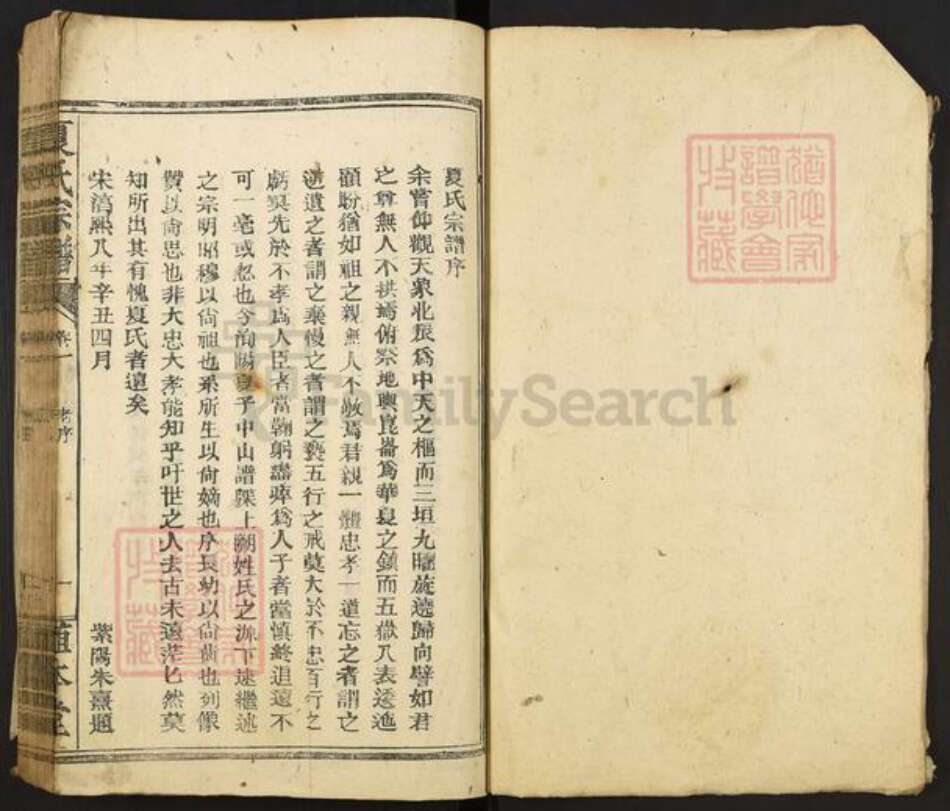 夏氏宗譜序
余嘗仰觀天象北辰爲中天之樞而三垣九曜旋遶歸向譬如君
之尊無人不拱焉俯察地輿崑崙爲華夏之鎮而五嶽乃表逶迤
顧盼猶如祖之親無人不敬焉君親一體忠孝一道忘之者謂之
遺之者謂之棄慢之者謂之褻五行之戒莫大於不忠百行之
虧莫先於不孝爲人臣者當鞠躬盡瘁爲人子者當慎終追遠不
可一毫或忽也今夏子中山譜牒上溯姓氏之源下逮繼述
之宗明昭穆以尙祖也系所生以尙嫡也序長幼以尙齒也列像
贊以尙思也非大忠大孝能知乎吁世之人去古未遠茫匕然莫
知所出其有愧夏氏者遠矣
宋淳熙八年辛丑四月
紫陽朱熹題
夏氏宗譜
卷一
老序
一
堂
譜學會
收藏
FamilySearch